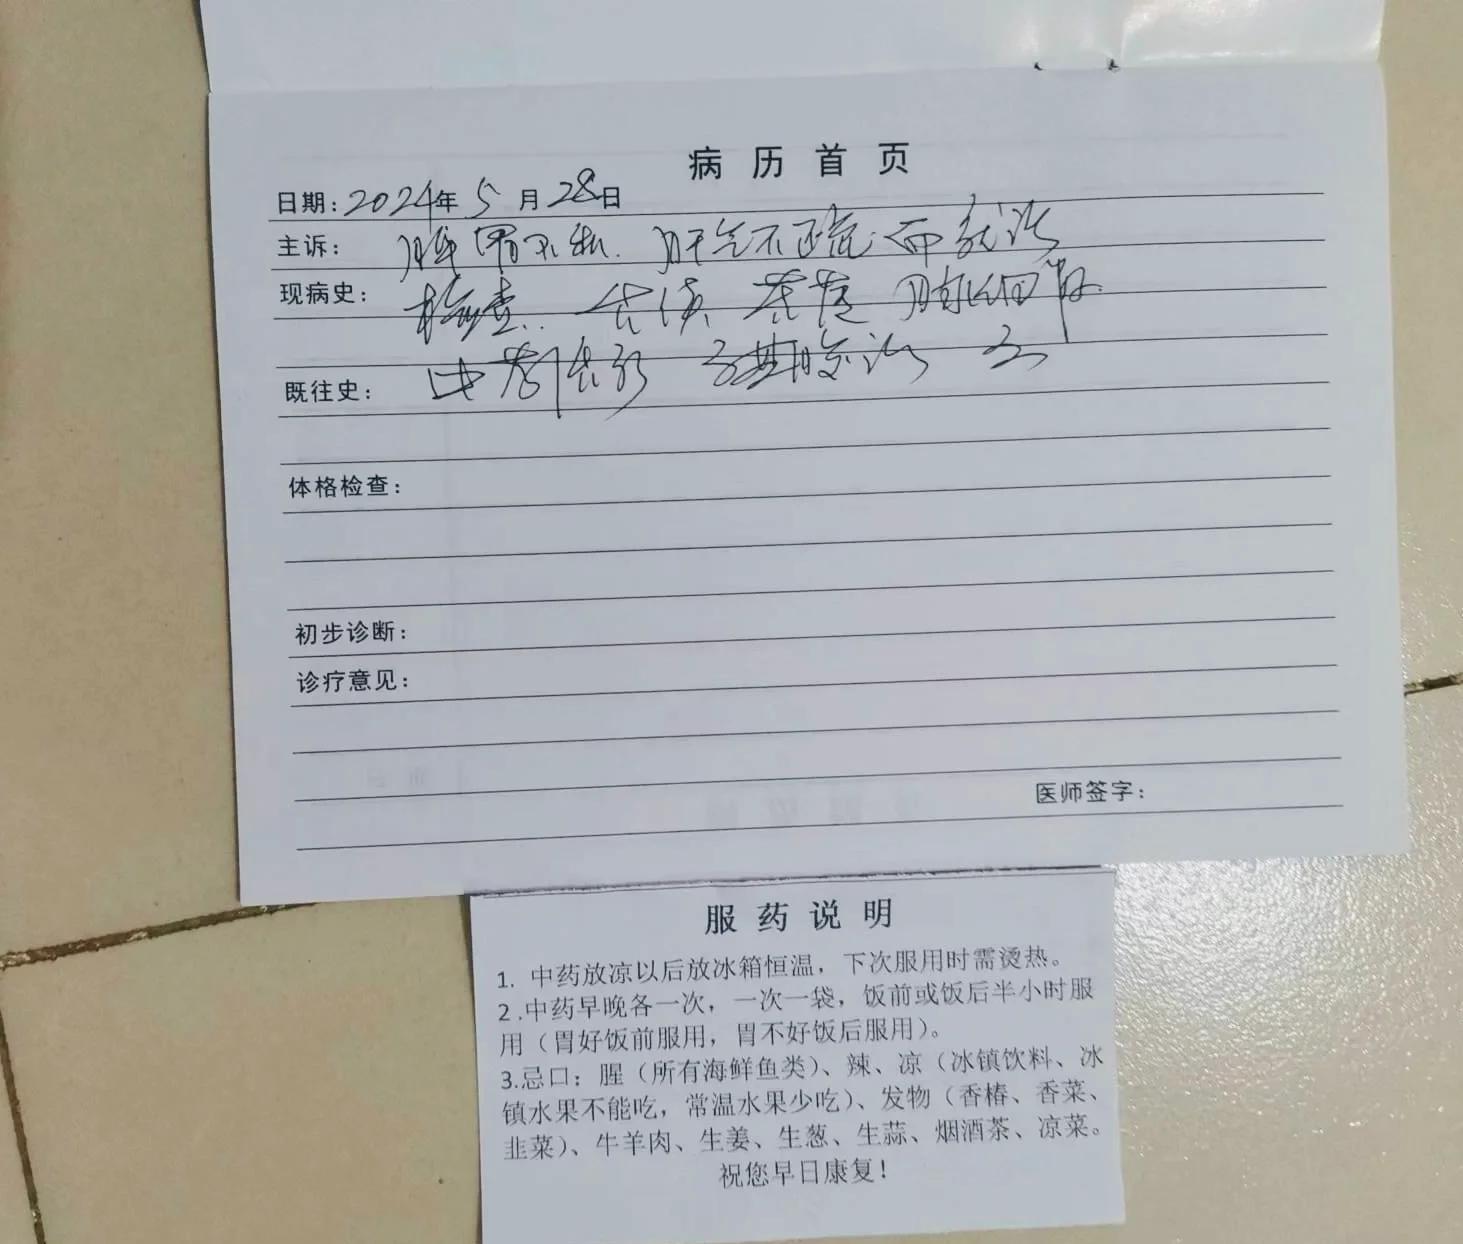 病历首页
日期：2024年5月28日
主诉：脾胃不和.肝气不疏.而就诊
现病史：检查.舌淡 苔 脉细
既往史：
体格检查：
初步诊断：
诊疗意见：
医师签字：
服药说明
1. 中药放凉以后放冰箱恒温，下次服用时需烫热。
2.中药早晚各一次，一次一袋，饭前或饭后半小时服
用（胃好饭前服用，胃不好饭后服用）。
3.忌口：腥（所有海鲜鱼类）、辣、凉（冰镇饮料、冰
镇水果不能吃，常温水果少吃）、发物（香椿、香菜、
韭菜）、牛羊肉、生姜、生葱、生蒜、烟酒茶、凉菜。
祝您早日康复！